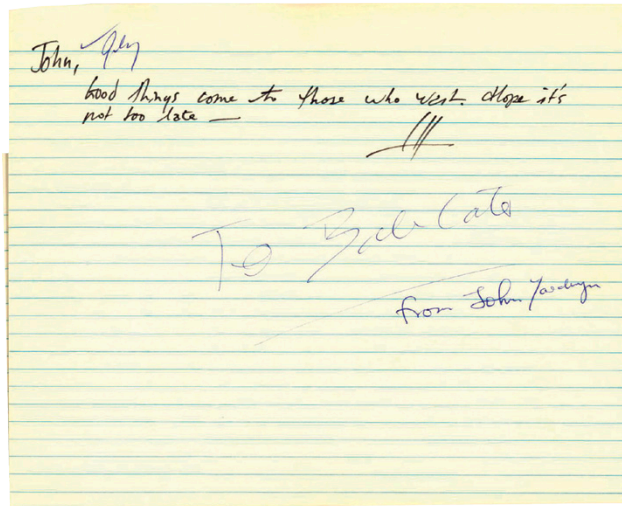 John,
Good things come to those who wait. Hope it's
not too late —
To Bob Cato
from John